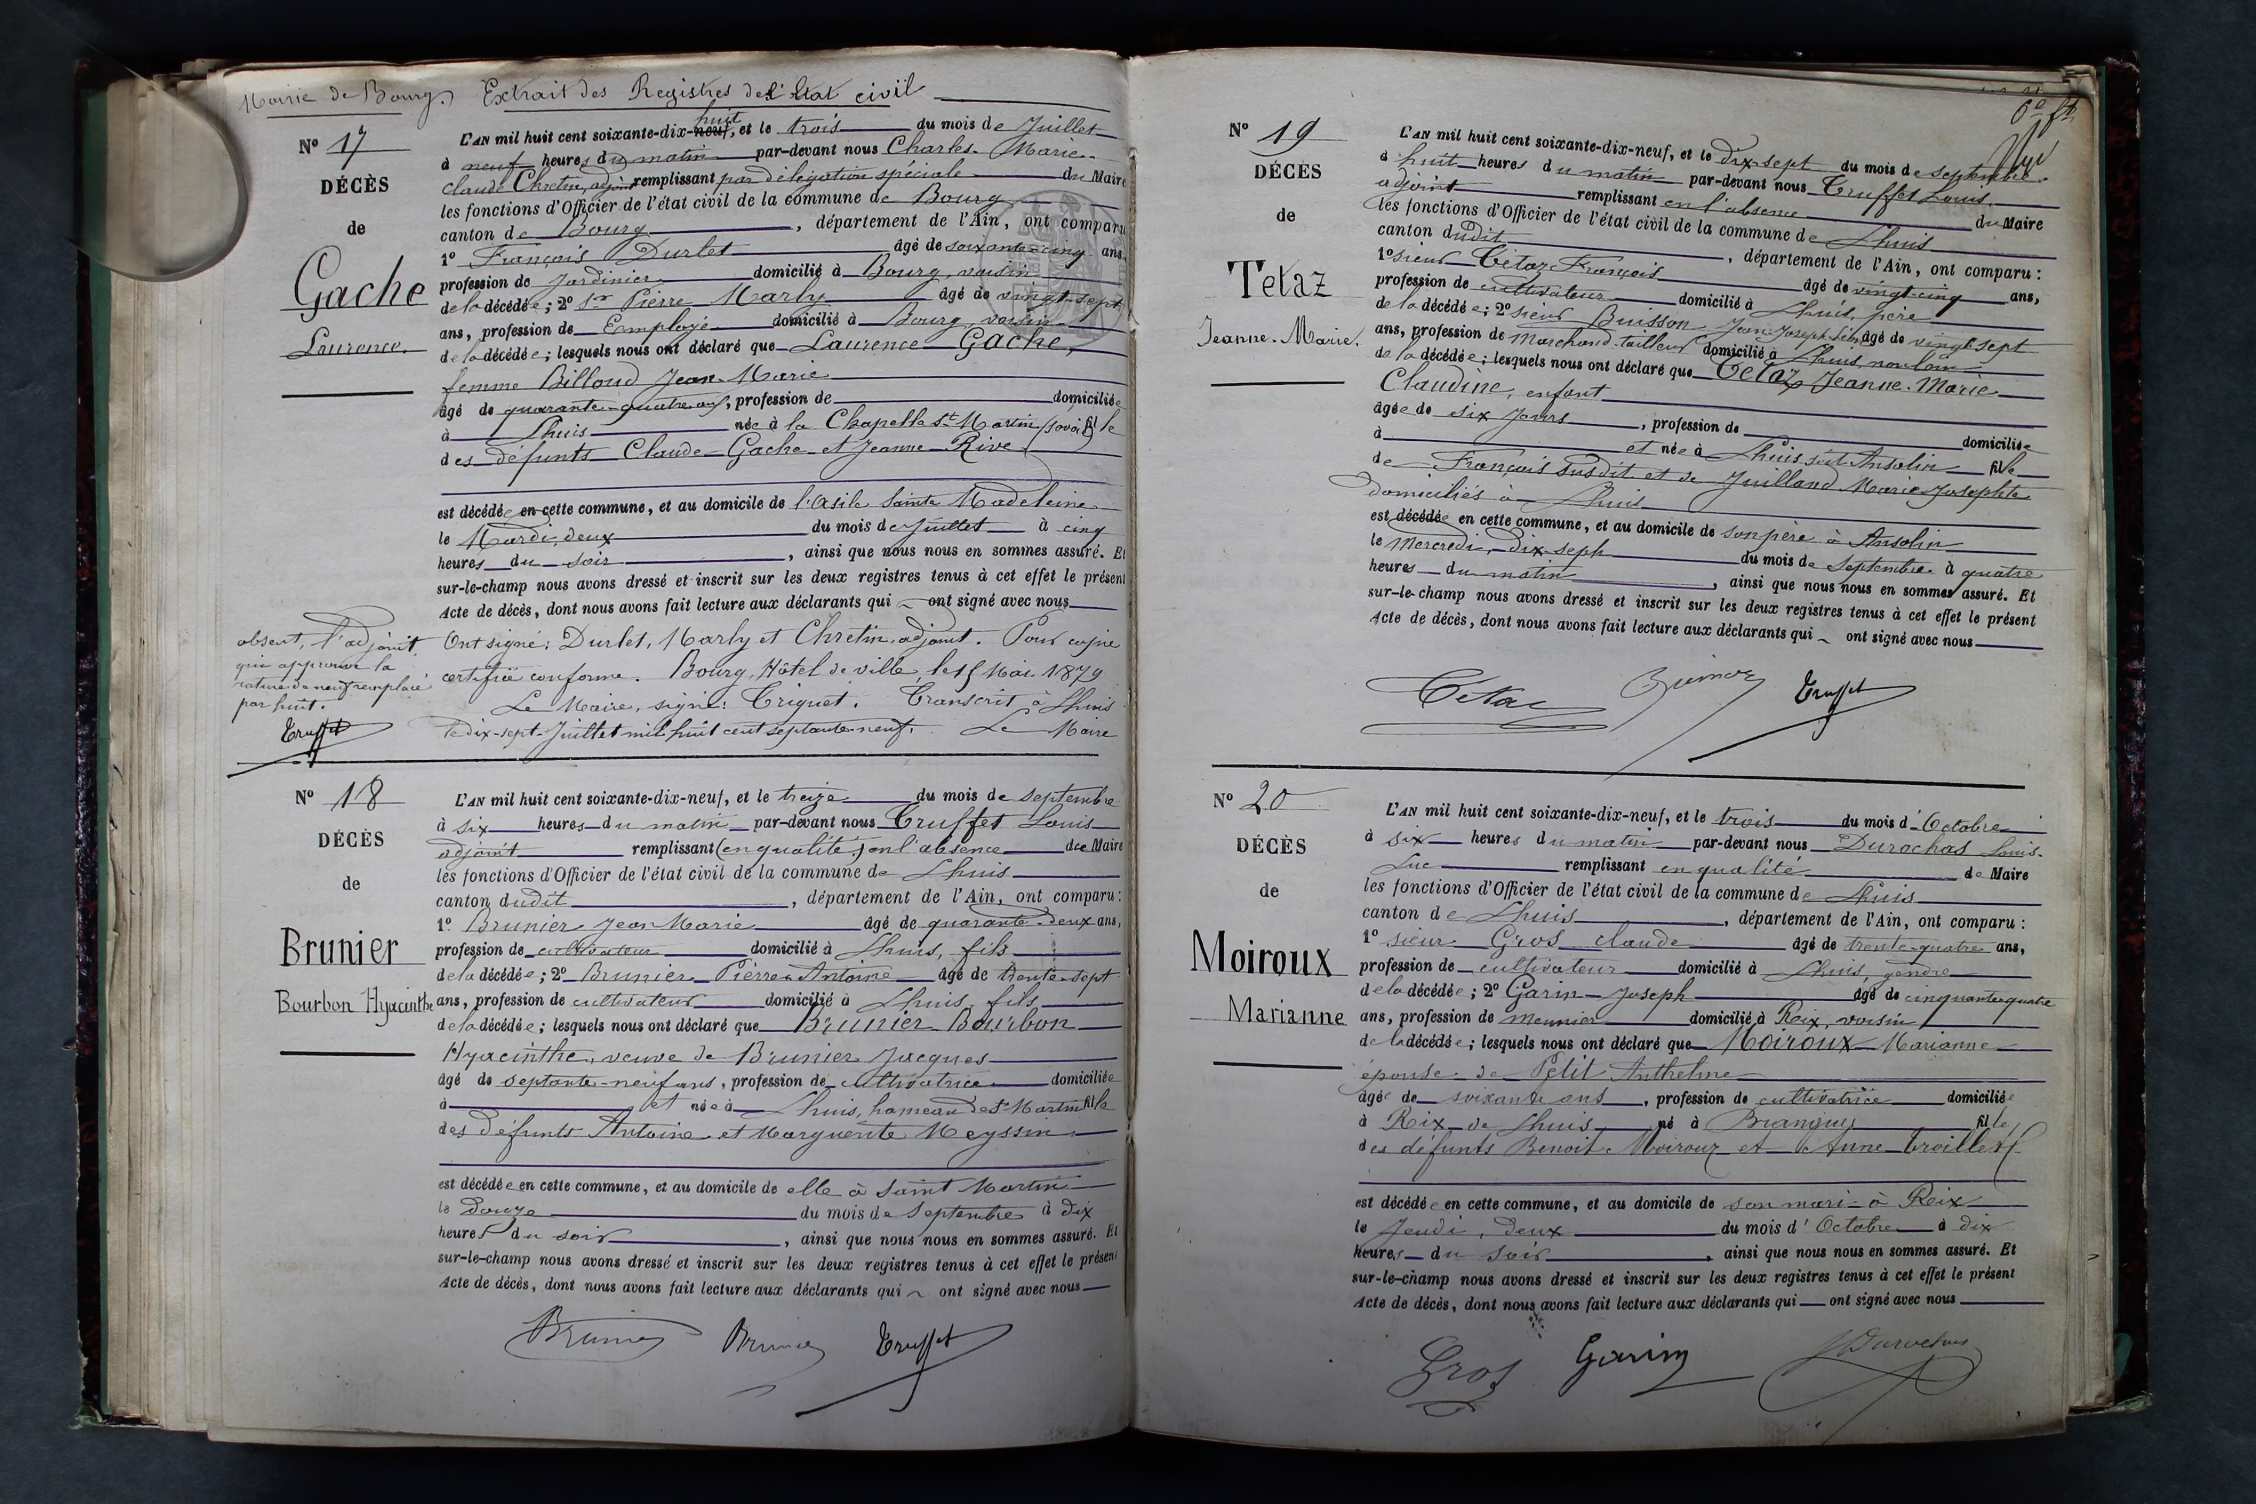 Mairie de Bourg. Extrait des Registres de l'état civil
N° 17
DÉCÈS
de
Gache
Laurence
L'AN mil huit cent soixante-dix-neuf, huit et le trois du mois de Juillet
à neuf heures du matin par-devant nous Charles-Marie
Claude Chretin, adjoint remplissant par délégation spéciale du Maire
les fonctions d'Officier de l'état civil de la commune de Bourg
canton de Bourg, département de l'Ain, ont comparu
1° François Durlet âgé de soixante-cinq ans,
profession de Jardinier domicilié à Bourg, voisin
de la décédée; 2° Sr Pierre Marly âgé de vingt-sept
ans, profession de Employé domicilié à Bourg, voisin
de la décédée; lesquels nous ont déclaré que Laurence Gache,
femme Billoud Jean-Marie
âgé de quarante-quatre ans, profession de domiciliée
à Lhuis née à la Chapelle St Martin (savoie) fille
des défunts Claude Gache et Jeanne Rive
est décédée en cette commune, et au domicile de l'asile Sainte Madeleine
le Mardi, deux du mois de Juillet à cinq
heures du soir, ainsi que nous nous en sommes assuré. Et
sur-le-champ nous avons dressé et inscrit sur les deux registres tenus à cet effet le présent
Acte de décès, dont nous avons fait lecture aux déclarants qui ont signé avec nous
Ont signé: Durlet, Marly et Chretin, adjoint. Pour copie
certifiée conforme. Bourg, Hôtel de ville, le 15 Mai 1879
Le Maire, signé: Triquet. Transcrit à Lhuis
le dix-sept Juillet mil huit cent septante-neuf. Le Maire
absent, l'adjoint
qui approuve la
rature de neuf remplacé
par huit.
Truffet
N° 18
DÉCÈS
de
Brunier
Bourbon Hyacinthe
L'AN mil huit cent soixante-dix-neuf, et le treize du mois de septembre
à six heures du matin par-devant nous Truffet Louis
adjoint remplissant (en qualité) en l'absence du Maire
les fonctions d'Officier de l'état civil de la commune de Lhuis
canton dudit, département de l'Ain, ont comparu:
1° Brunier Jean Marie âgé de quarante-deux ans,
profession de cultivateur domicilié à Lhuis, fils
de la décédée; 2° Brunier Pierre-Antoine âgé de trente-sept
ans, profession de cultivateur domicilié à Lhuis, fils
de la décédée; lesquels nous ont déclaré que Brunier Bourbon
Hyacinthe, veuve de Brunier Jacques
âgé de septante-neuf ans, profession de cultivatrice domiciliée
à et née à Lhuis, hameau de St Martin fille
des défunts Antoine et Marguerite Meyssin
est décédée en cette commune, et au domicile de elle à Saint Martin
le Douze du mois de Septembre à dix
heures du soir, ainsi que nous nous en sommes assuré. Et
sur-le-champ nous avons dressé et inscrit sur les deux registres tenus à cet effet le présent
Acte de décès, dont nous avons fait lecture aux déclarants qui ont signé avec nous
Brunier Brunier Truffet
6e ft
N° 19
DÉCÈS
de
Tetaz
Jeanne-Marie.
L'AN mil huit cent soixante-dix-neuf, et le dix-sept du mois de septembre
à huit heures du matin par-devant nous Truffet Louis
adjoint remplissant en l'absence du Maire
les fonctions d'Officier de l'état civil de la commune de Lhuis
canton dudit, département de l'Ain, ont comparu:
1° sieur Tétaz François âgé de vingt-cinq ans,
profession de cultivateur domicilié à Lhuis, père
de la décédée; 2° sieur Buisson Jean-Joseph âgé de vingt-sept
ans, profession de Marchand-tailleur domicilié à Lhuis, non loin
de la décédée; lesquels nous ont déclaré que Tetaz Jeanne-Marie
Claudine, enfant
âgée de six jours, profession de domiciliée
à et née à Lhuis soit Ansolin fille
de François susdit et de Juilland Marie-Josephte
domiciliés à Lhuis
est décédée en cette commune, et au domicile de son père à Ansolin
le Mercredi, dix-sept du mois de septembre à quatre
heures du matin, ainsi que nous nous en sommes assuré. Et
sur-le-champ nous avons dressé et inscrit sur les deux registres tenus à cet effet le présent
Acte de décès, dont nous avons fait lecture aux déclarants qui ont signé avec nous
Tétaz Truffet
N° 20
DÉCÈS
de
Moiroux
Marianne
L'AN mil huit cent soixante-dix-neuf, et le trois du mois d'Octobre
à six heures du matin par-devant nous Durochas Louis-
Luc remplissant en qualité de Maire
les fonctions d'Officier de l'état civil de la commune de Lhuis
canton de Lhuis, département de l'Ain, ont comparu:
1° sieur Gros claude âgé de trente-quatre ans,
profession de cultivateur domicilié à Lhuis, gendre
de la décédée; 2° Garin Joseph âgé de cinquante-quatre
ans, profession de meunier domicilié à Reix, voisin
de la décédée; lesquels nous ont déclaré que Moiroux Marianne
épouse de Petit Anthelme
âgée de soixante ans, profession de cultivatrice domiciliée
à Reix de Lhuis né à Brangues fille
des défunts Benoit Moiroux et Anne Troillet
est décédée en cette commune, et au domicile de son mari à Reix
le Jeudi, deux du mois d'Octobre à dix
heures du soir, ainsi que nous nous en sommes assuré. Et
sur-le-champ nous avons dressé et inscrit sur les deux registres tenus à cet effet le présent
Acte de décès, dont nous avons fait lecture aux déclarants qui ont signé avec nous
Gros Garin